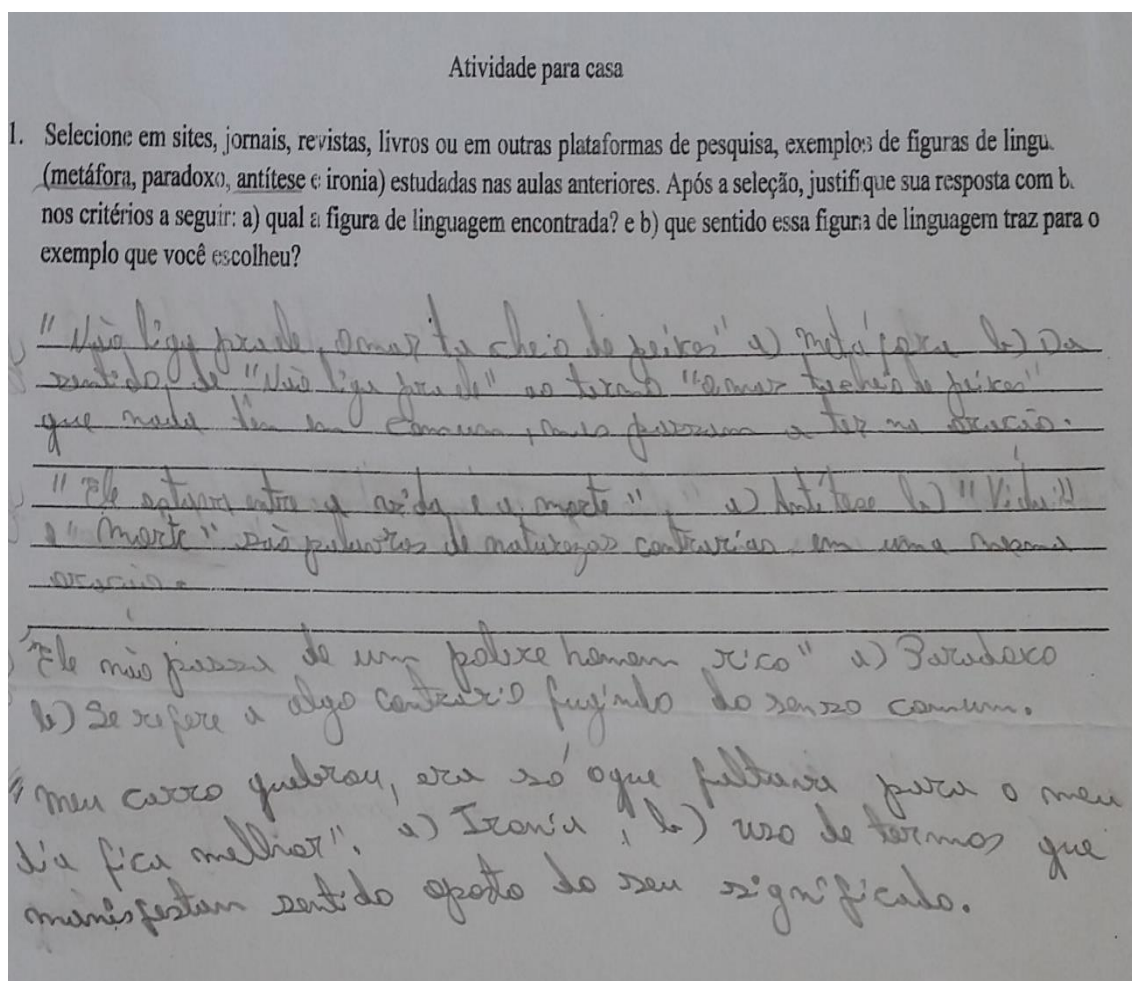 Atividade para casa
1. Selecione em sites, jornais, revistas, livros ou em outras plataformas de pesquisa, exemplos de figuras de lingu
(metáfora, paradoxo, antítese e ironia) estudadas nas aulas anteriores. Após a seleção, justifique sua resposta com b
nos critérios a seguir: a) qual a figura de linguagem encontrada? e b) que sentido essa figura de linguagem traz para o
exemplo que você escolheu?
"Não ligue pra ele, o mar ta cheio de peixes" a) metáfora b) Da
sentido de "Não ligue pra ele" ao termo "o mar ta cheio de peixes"
que nada têm em comum, mas passam a ter na oração.
"Ele estava entre a vida e a morte". a) Antítese b) "Vida"
e "morte" são palavras de naturezas contrárias em uma mesma
oração.
"Ele não passa de um pobre homem rico" a) Paradoxo
b) Se refere a algo contrário fugindo do senso comum.
"meu carro quebrou, era só oque faltava para o meu
dia fica melhor". a) Ironia, b) uso de termos que
manisfestam sentido oposto do seu significado.